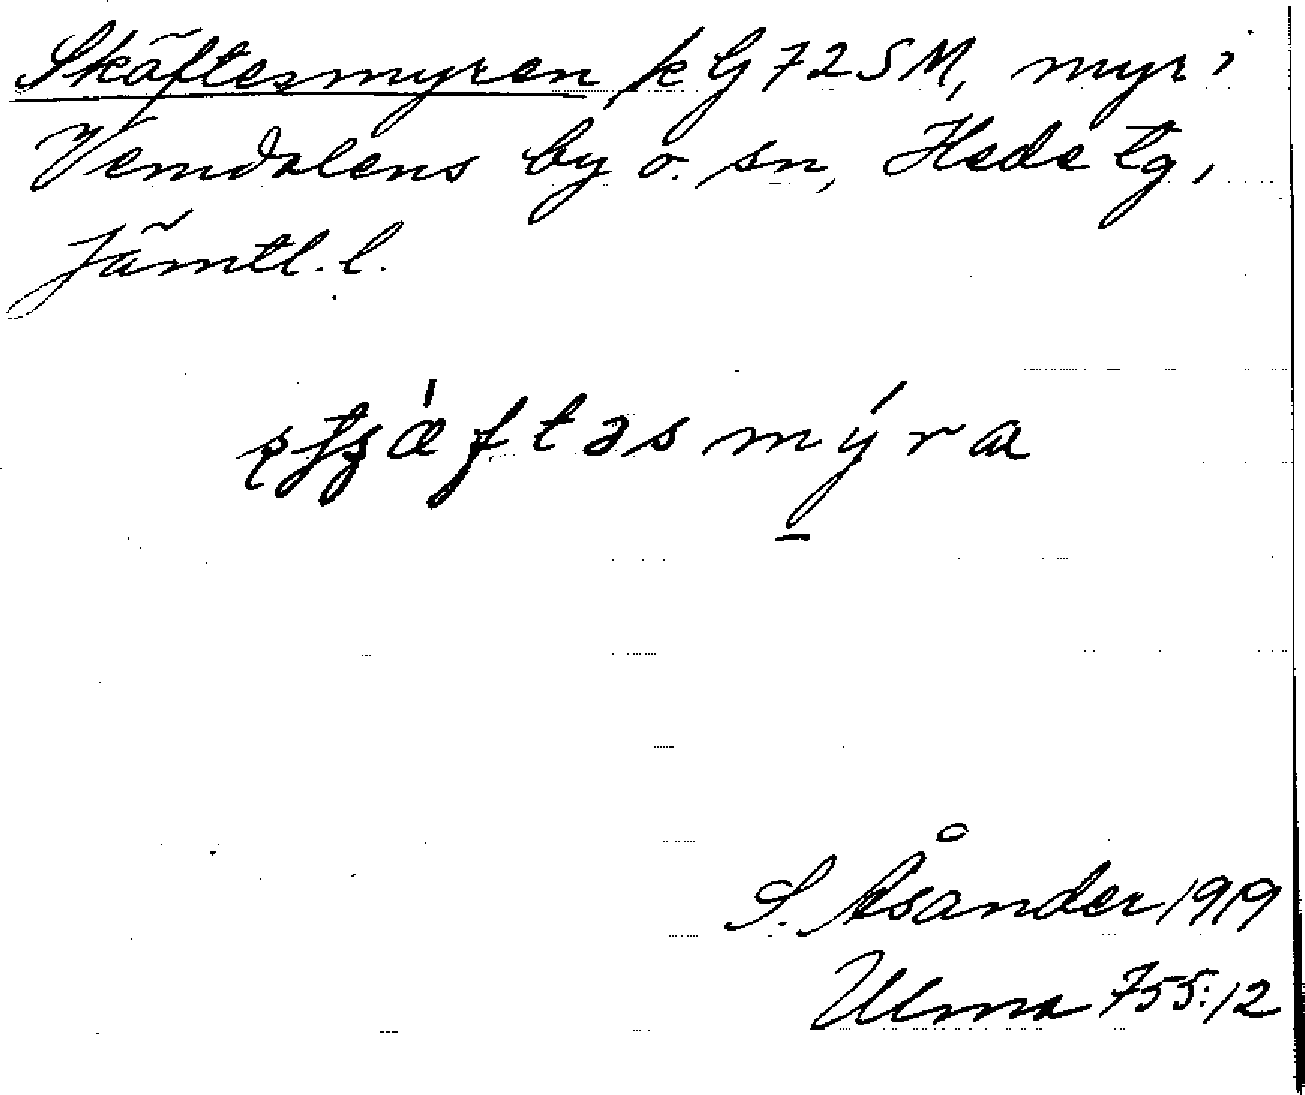 Skäftesmyren kG72SM, myr i
Vemdalens by o. sn, Hede tg,
Jämtl. l.
ǽftəsmýra
S. Åsander 1919
Ulma 755:12